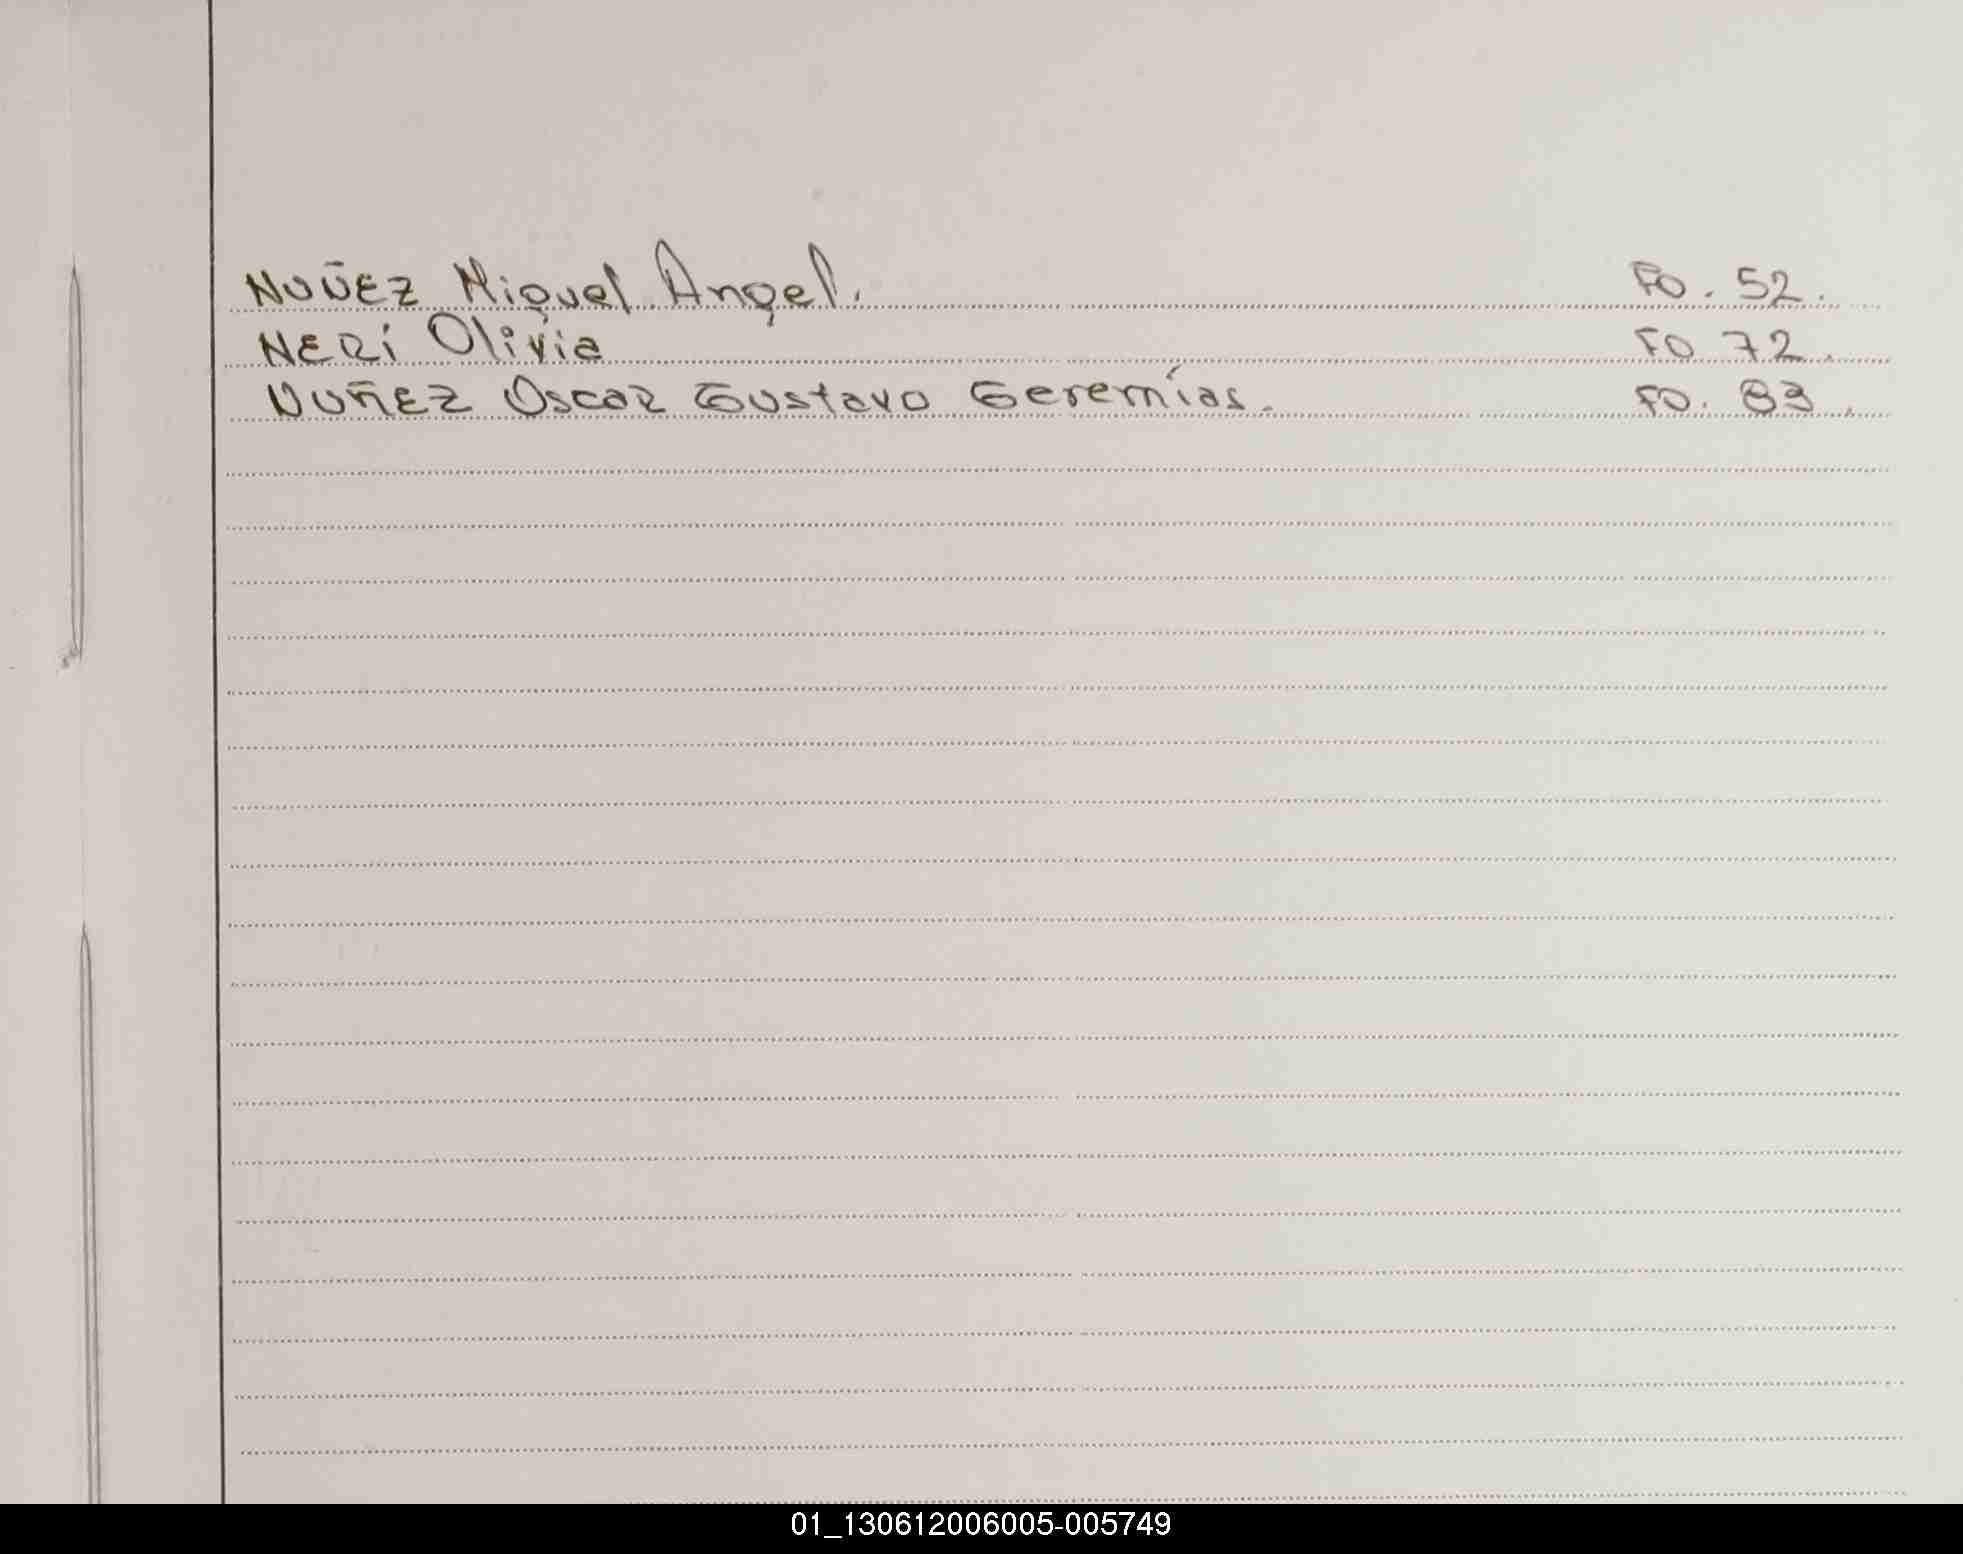 NUÑEZ Miguel Angel. Fo. 52.
NERí Olivia Fo 72.
NUÑEZ Oscar Gustavo Geremías. Fo. 83.
01_130612006005-005749